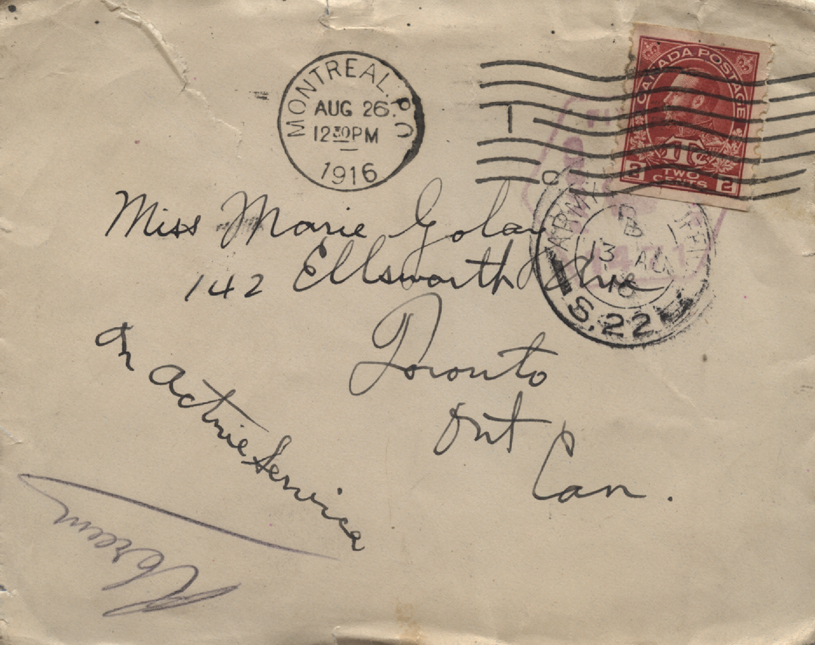 MONTREAL. P.Q.
AUG 26.
12 30 PM
1916
CANADA POSTAGE
1Tc
2 TWO CENTS 2
ARMY
B
13 AU
16
S.22
Miss Marie Golay
142 Ellsworth Ave
Toronto
Ont
Can.
On Active Service